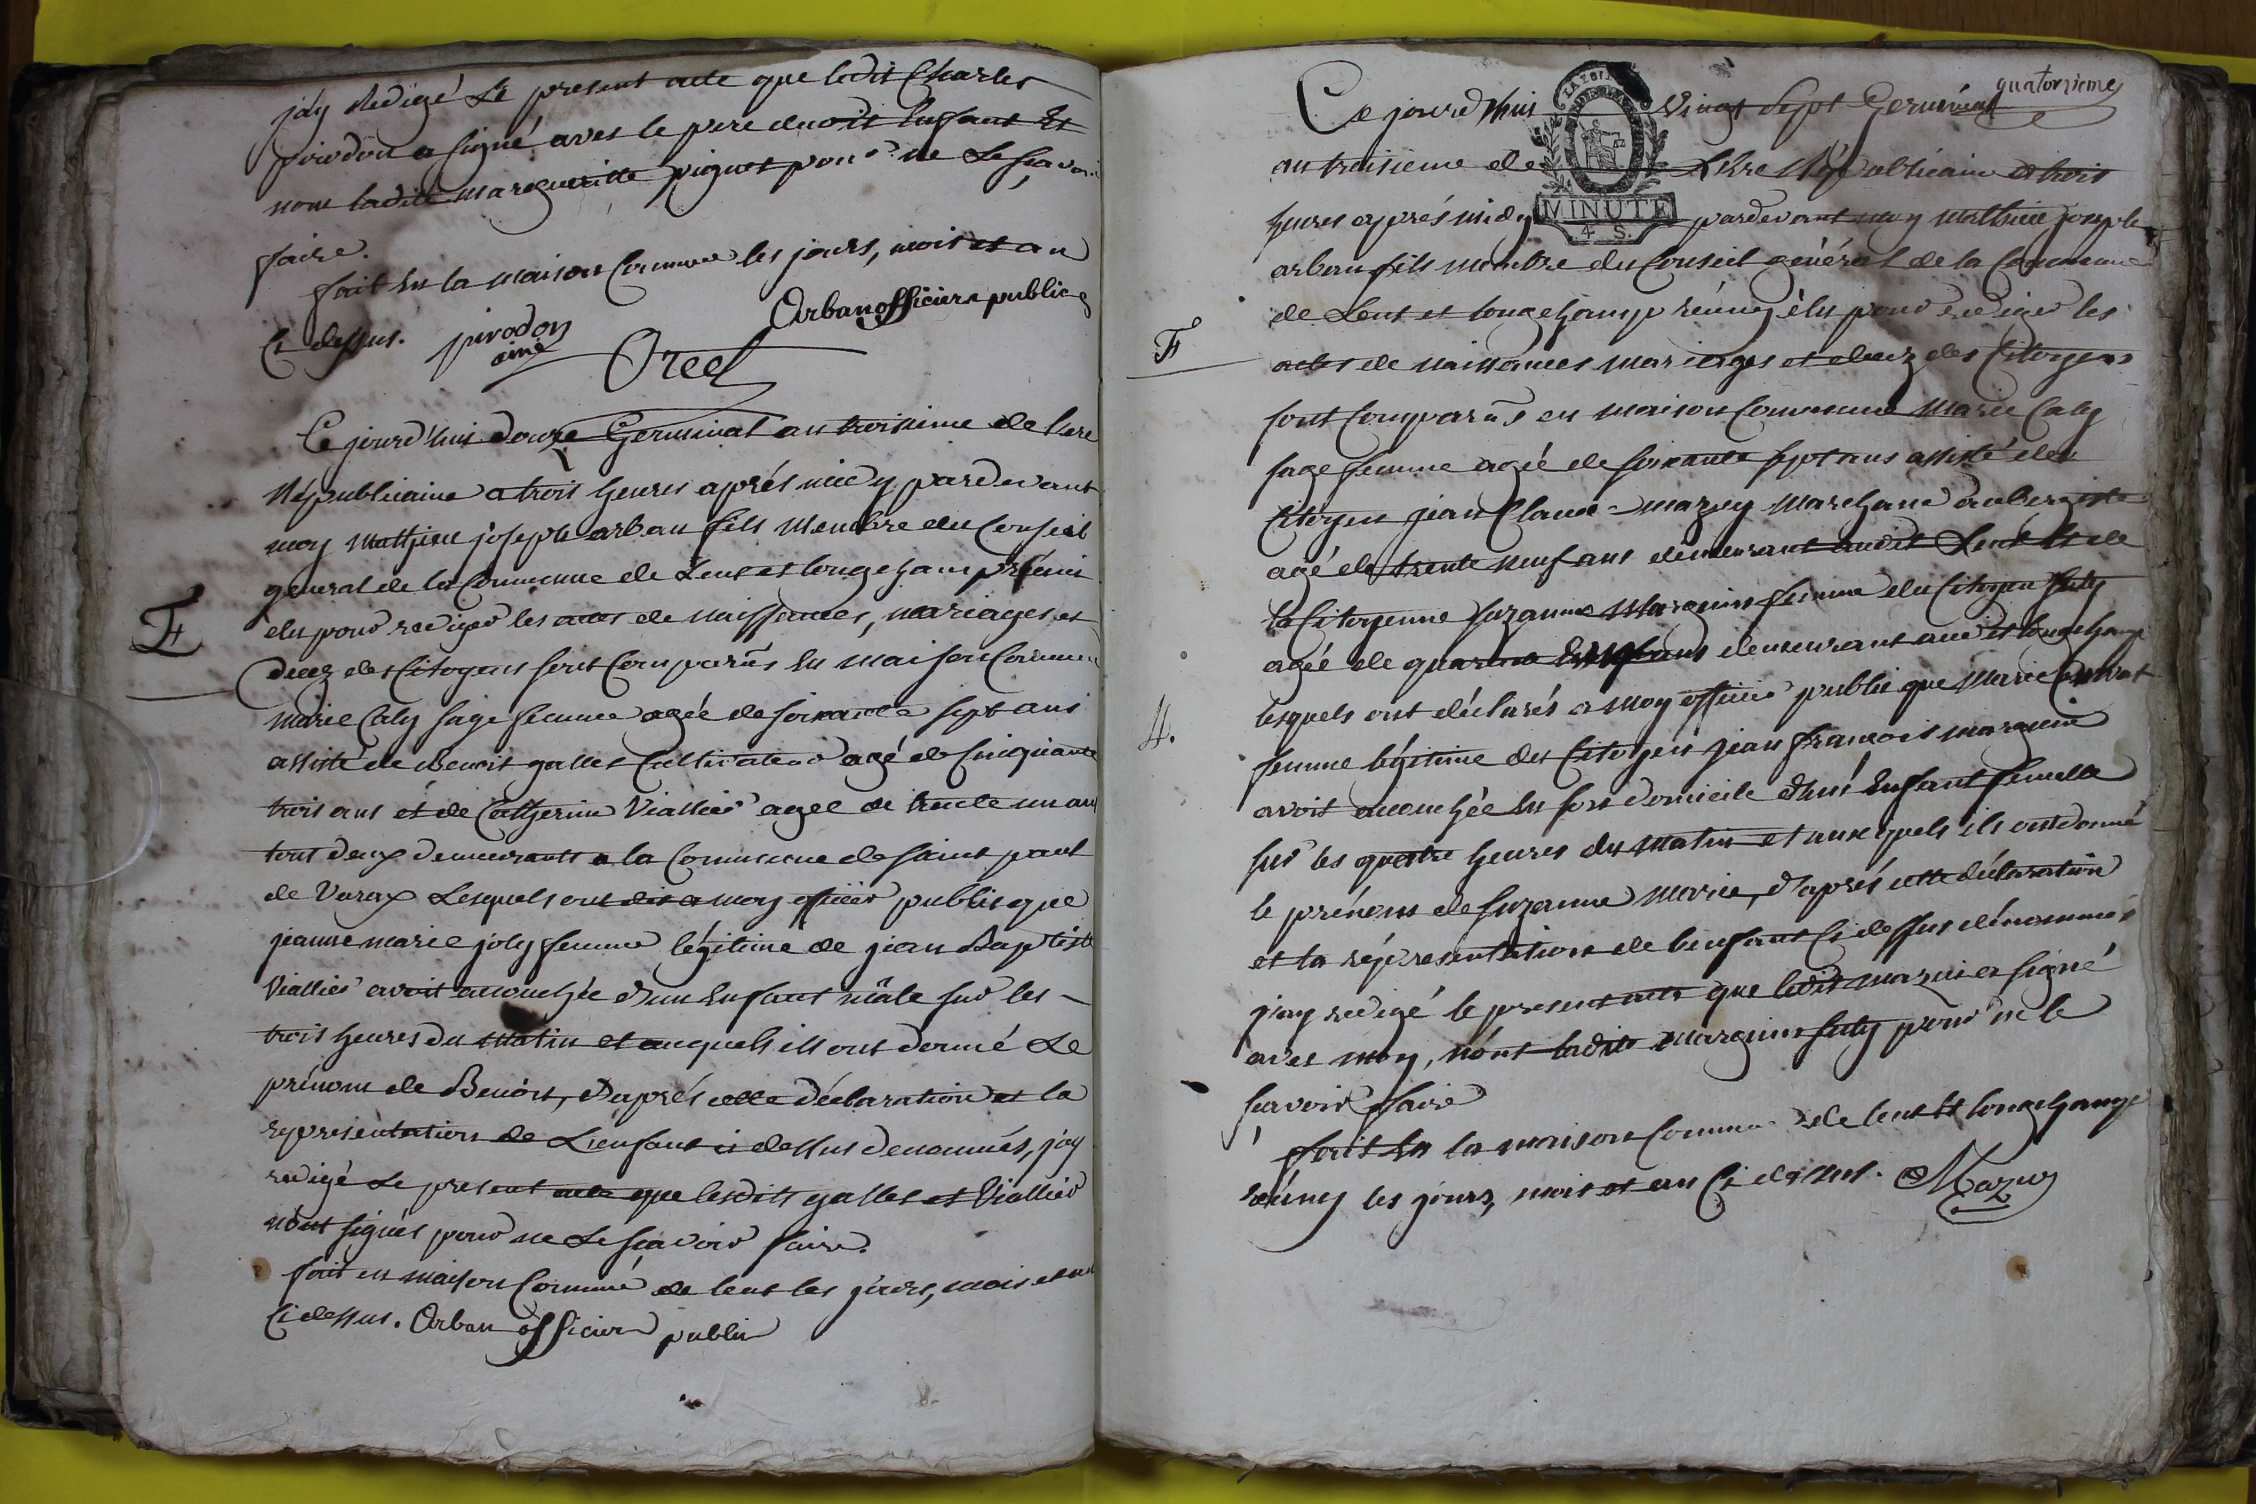 jay Redigé Le present acte que ledit Charles
poirodon a signé avec le pere duoit Enfant Et
nom ladite margueritte pour ne Le sçavoir
faire.
fait En la maison Commune les jours, mois et an
Ci dessus. pirodon ainé Orban officiere public
Oreel
Ce jourd'huy douze Germinal an troisieme de l'ere
Républicaine a trois heures aprés midy pardevant
moy Mathieu joseph orban fils Membre du Conseil
general de la Commune de Lent et longchamp réunis
elu pour rediger les actes de naissances, mariages et
decez des Citoyens sont Comparûs En maison Commune
marie Caly sage femme agée de soixante sept ans
assisté de Benoit galles Cultivateur agé de Cinquante
trois ans et de Catherine Viallier agée de trente un an
tout deux demeurants a la Commune de saint paul
de Varax Lesquels ont dit a moy officier public que
jeanne marie joly femme légitime de jean Baptiste
Viallier avoit accouchée d'un Enfant mâle sur les
trois heures du matin et auquels ils ont donné Le
prénom de Benoit, d'aprés cette déclaration et la
representation de L'enfant ci dessus denommés, jay
redigé Le present acte que lesdits galles et Viallier
n'ont signés pour ne Le sçavoir faire.
fait en maison Commune de lent les jours, mois et an
Ci dessus. Orban officiere public
quatorzieme
Ce jourd'huis vingt sept Germinal
an troisieme de L'Ere Républicaine a trois
heures aprés midy pardevant moy Mathieu joseph
MINUTE
4 S.
orban fils membre du Conseil général de la Commune
de Lent et longchamp réunis élu pour rediger les
F
actes de naissances mariages et decez des Citoyens
sont Comparûs en maison Commune Marie Caly
sage femme agée de soixante sept ans assisté du
Citoyen jean Claude mazuy Marchand aubergiste
agé de trente neuf ans demeurant audit Lent Et de
la Citoyenne suzanne Marguin femme du Citoyen suty
agée de quarante demeurant audit longchamp
lesquels ont déclarés a moy officier public que Marie
4.
femme légitime du Citoyen jean françois marguin
avoit accouchée En son domicile d'uné Enfant femelle
sur les quatre heures du matin et auxquels ils ont donné
le prénom de suzanne Marie, d'aprés cette déclaration
et la réprésentation de l'enfant Ci dessus dénommés
j'ay redigé le present acte que ledit mazui a signé
avec moy, nónt ladite marguin suty pour ne le
sçavoir faire
fait En la maison Commune de lent Et longchamp
réuny les jours, mois et an Ci dessus. Mazuy